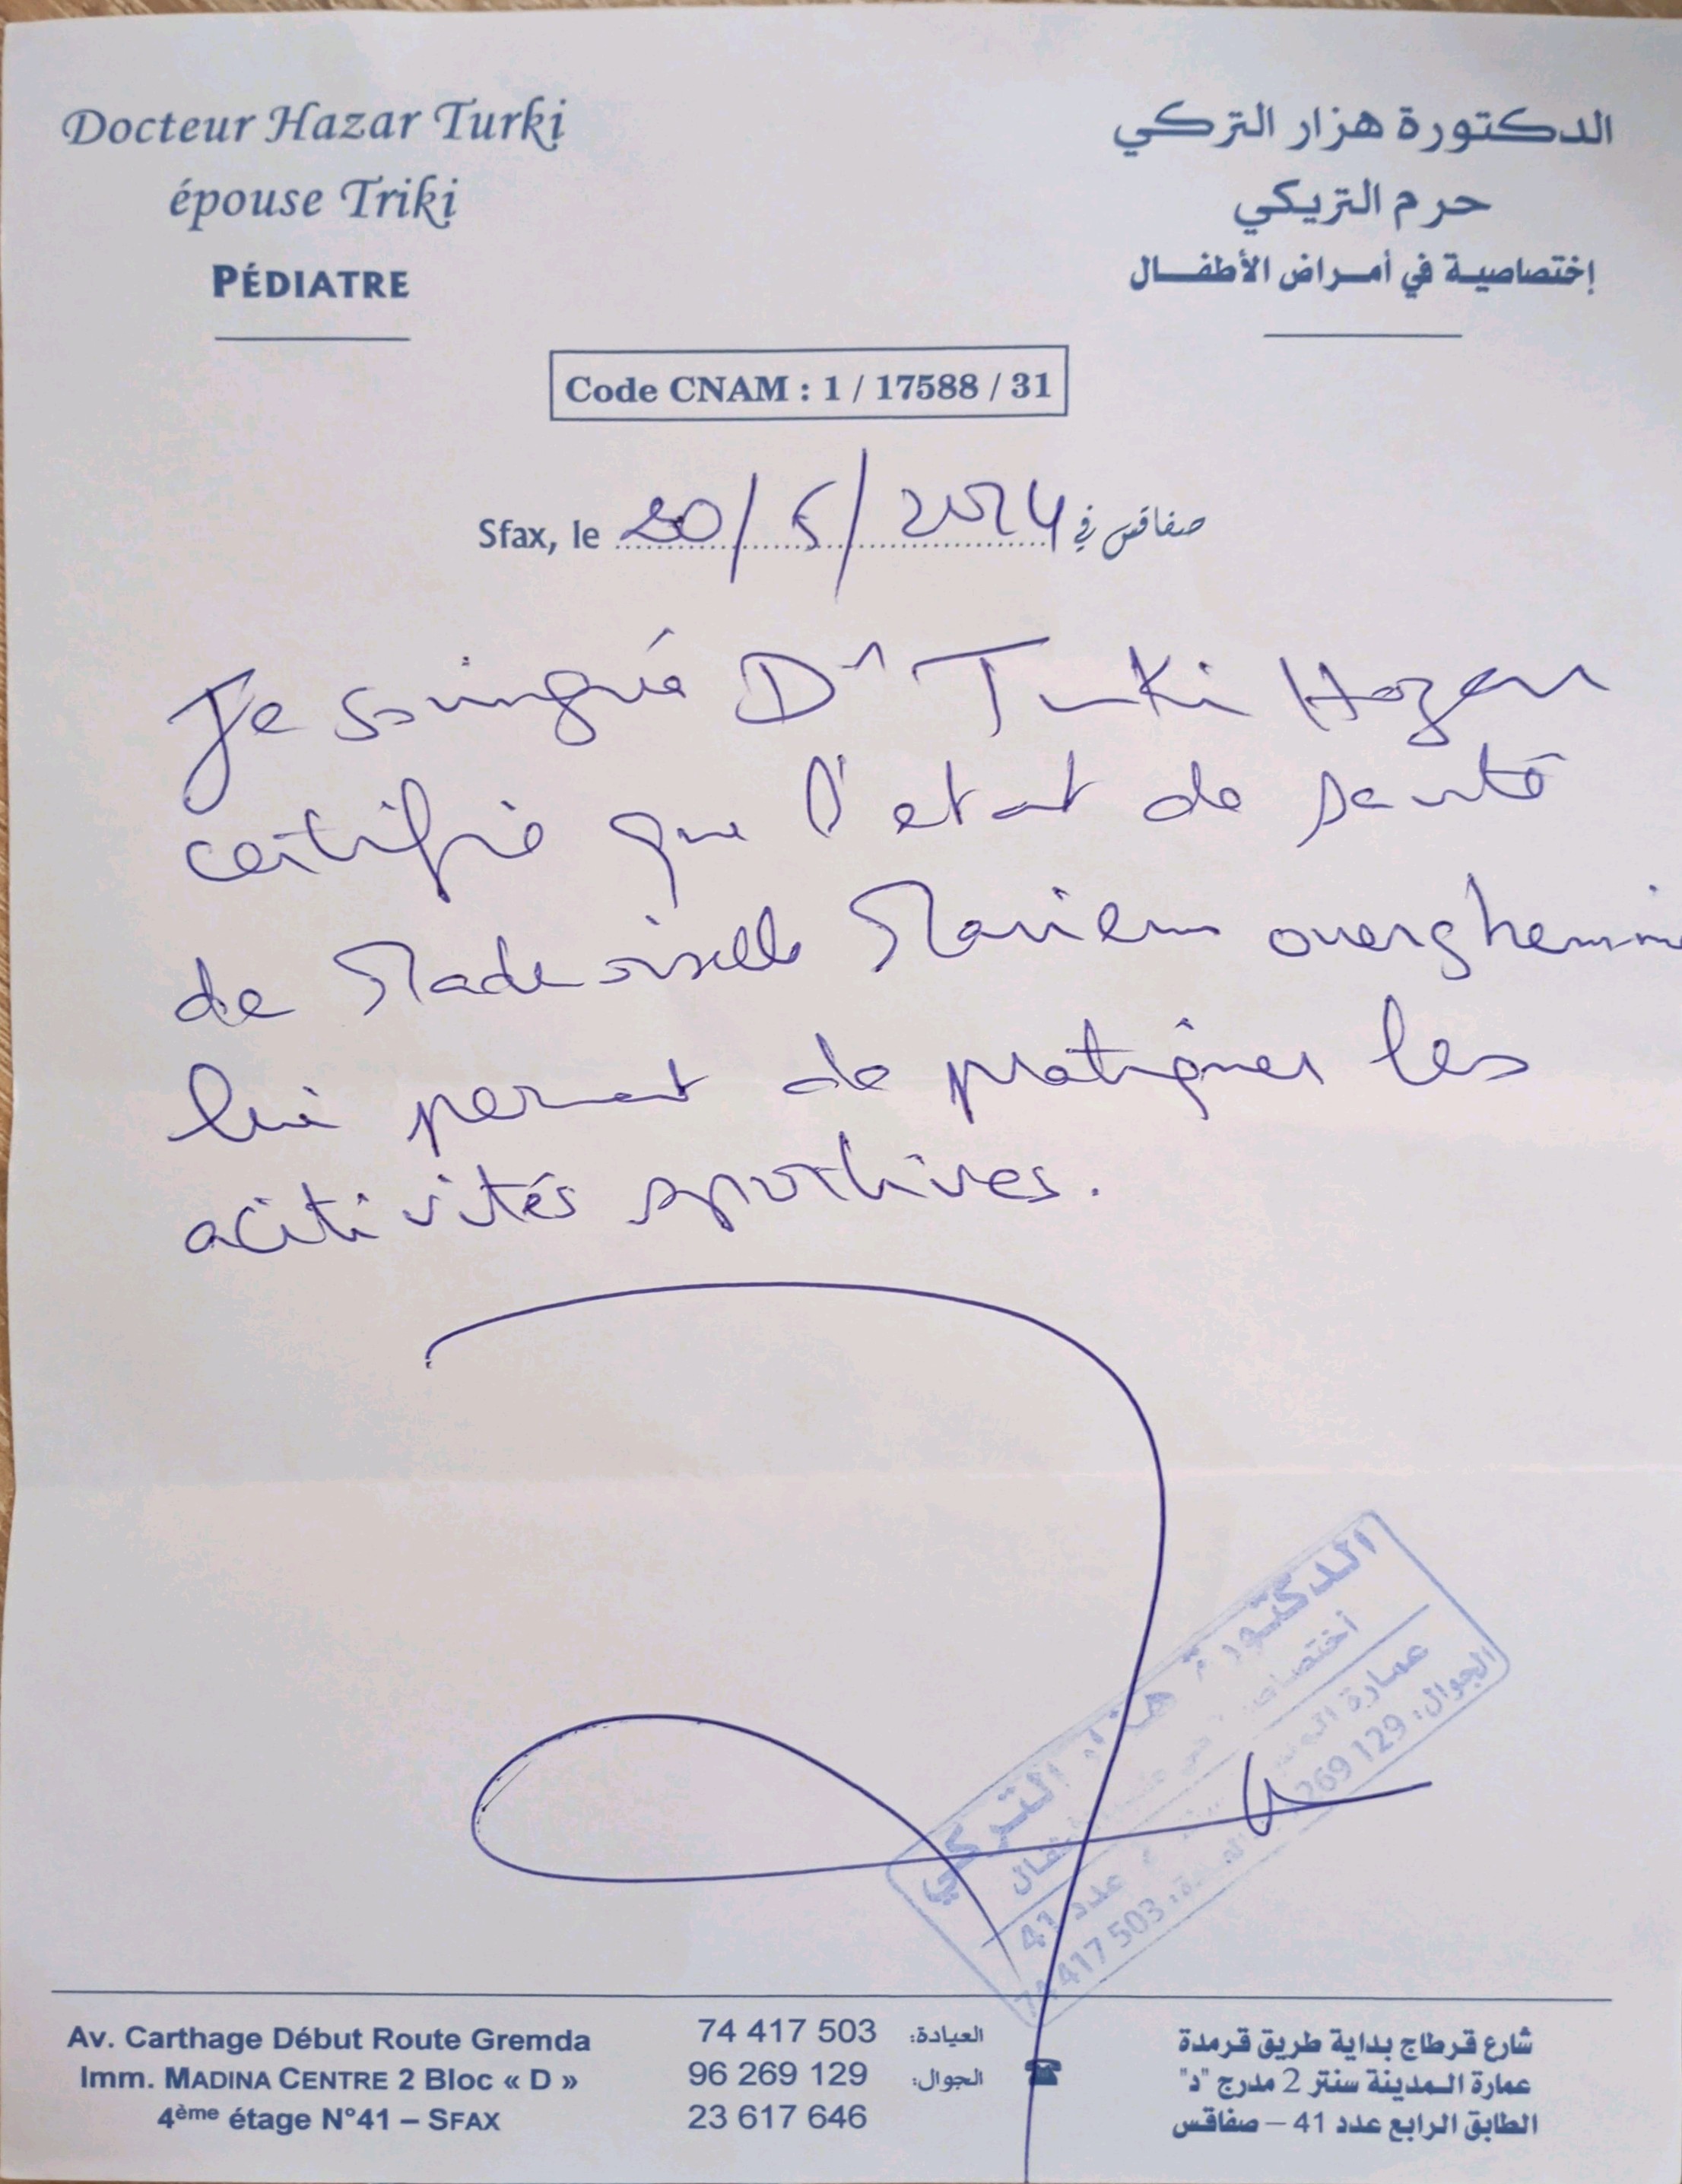 Docteur Hazar Turki
épouse Triki
PÉDIATRE
الدكتورة هزار التركي
حرم التريكي
إختصاصية في أمراض الأطفال
Code CNAM : 1 / 17588 / 31
Sfax, le 20/5/2024 صفاقس في
Je soingné Dr Turki Hazar
certifie que l'etat de santé
de Mademoiselle Mariem
lui permet de pratiquer les
acitivités sportives.
الدكتورة هزار التركي
عدد 41
الجوال: 269 129
74 417 503
Av. Carthage Début Route Gremda
Imm. MADINA CENTRE 2 Bloc « D »
4ème étage N°41 – SFAX
العيادة: 74 417 503
الجوال: 96 269 129
23 617 646
شارع قرطاج بداية طريق قرمدة
عمارة المدينة سنتر 2 مدرج "د"
الطابق الرابع عدد 41 – صفاقس